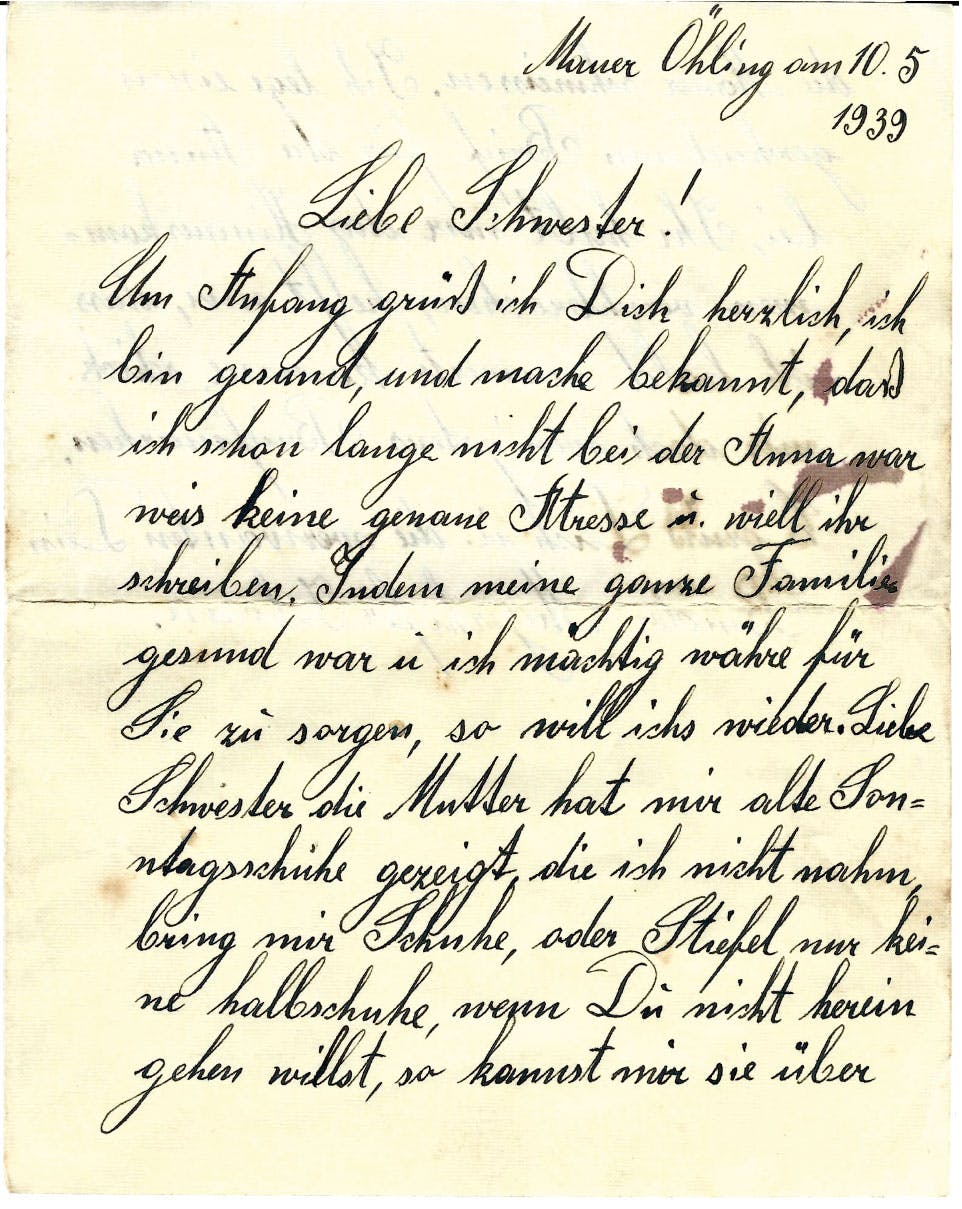 Mauer Öhling am 10. 5
1939
Liebe Schwester!
Um Anfang grüß ich Dich herzlich, ich
bin gesund, und mache bekannt, daß
ich schon lange nicht bei der Anna war
weis keine genaue Atresse u. wiell ihr
schreiben. Indem meine ganze Familie
gesund war u ich mächtig währe für
Sie zu sorgen, so will ichs wieder. Liebe
Schwester die Mutter hat mir alte Son=
ntagsschuhe gezeigt, die ich nicht nahm,
bring mir Schuhe, oder Stiefel nur kei=
ne halbschuhe, wenn Du nicht herein
gehen willst, so kannst mir sie über